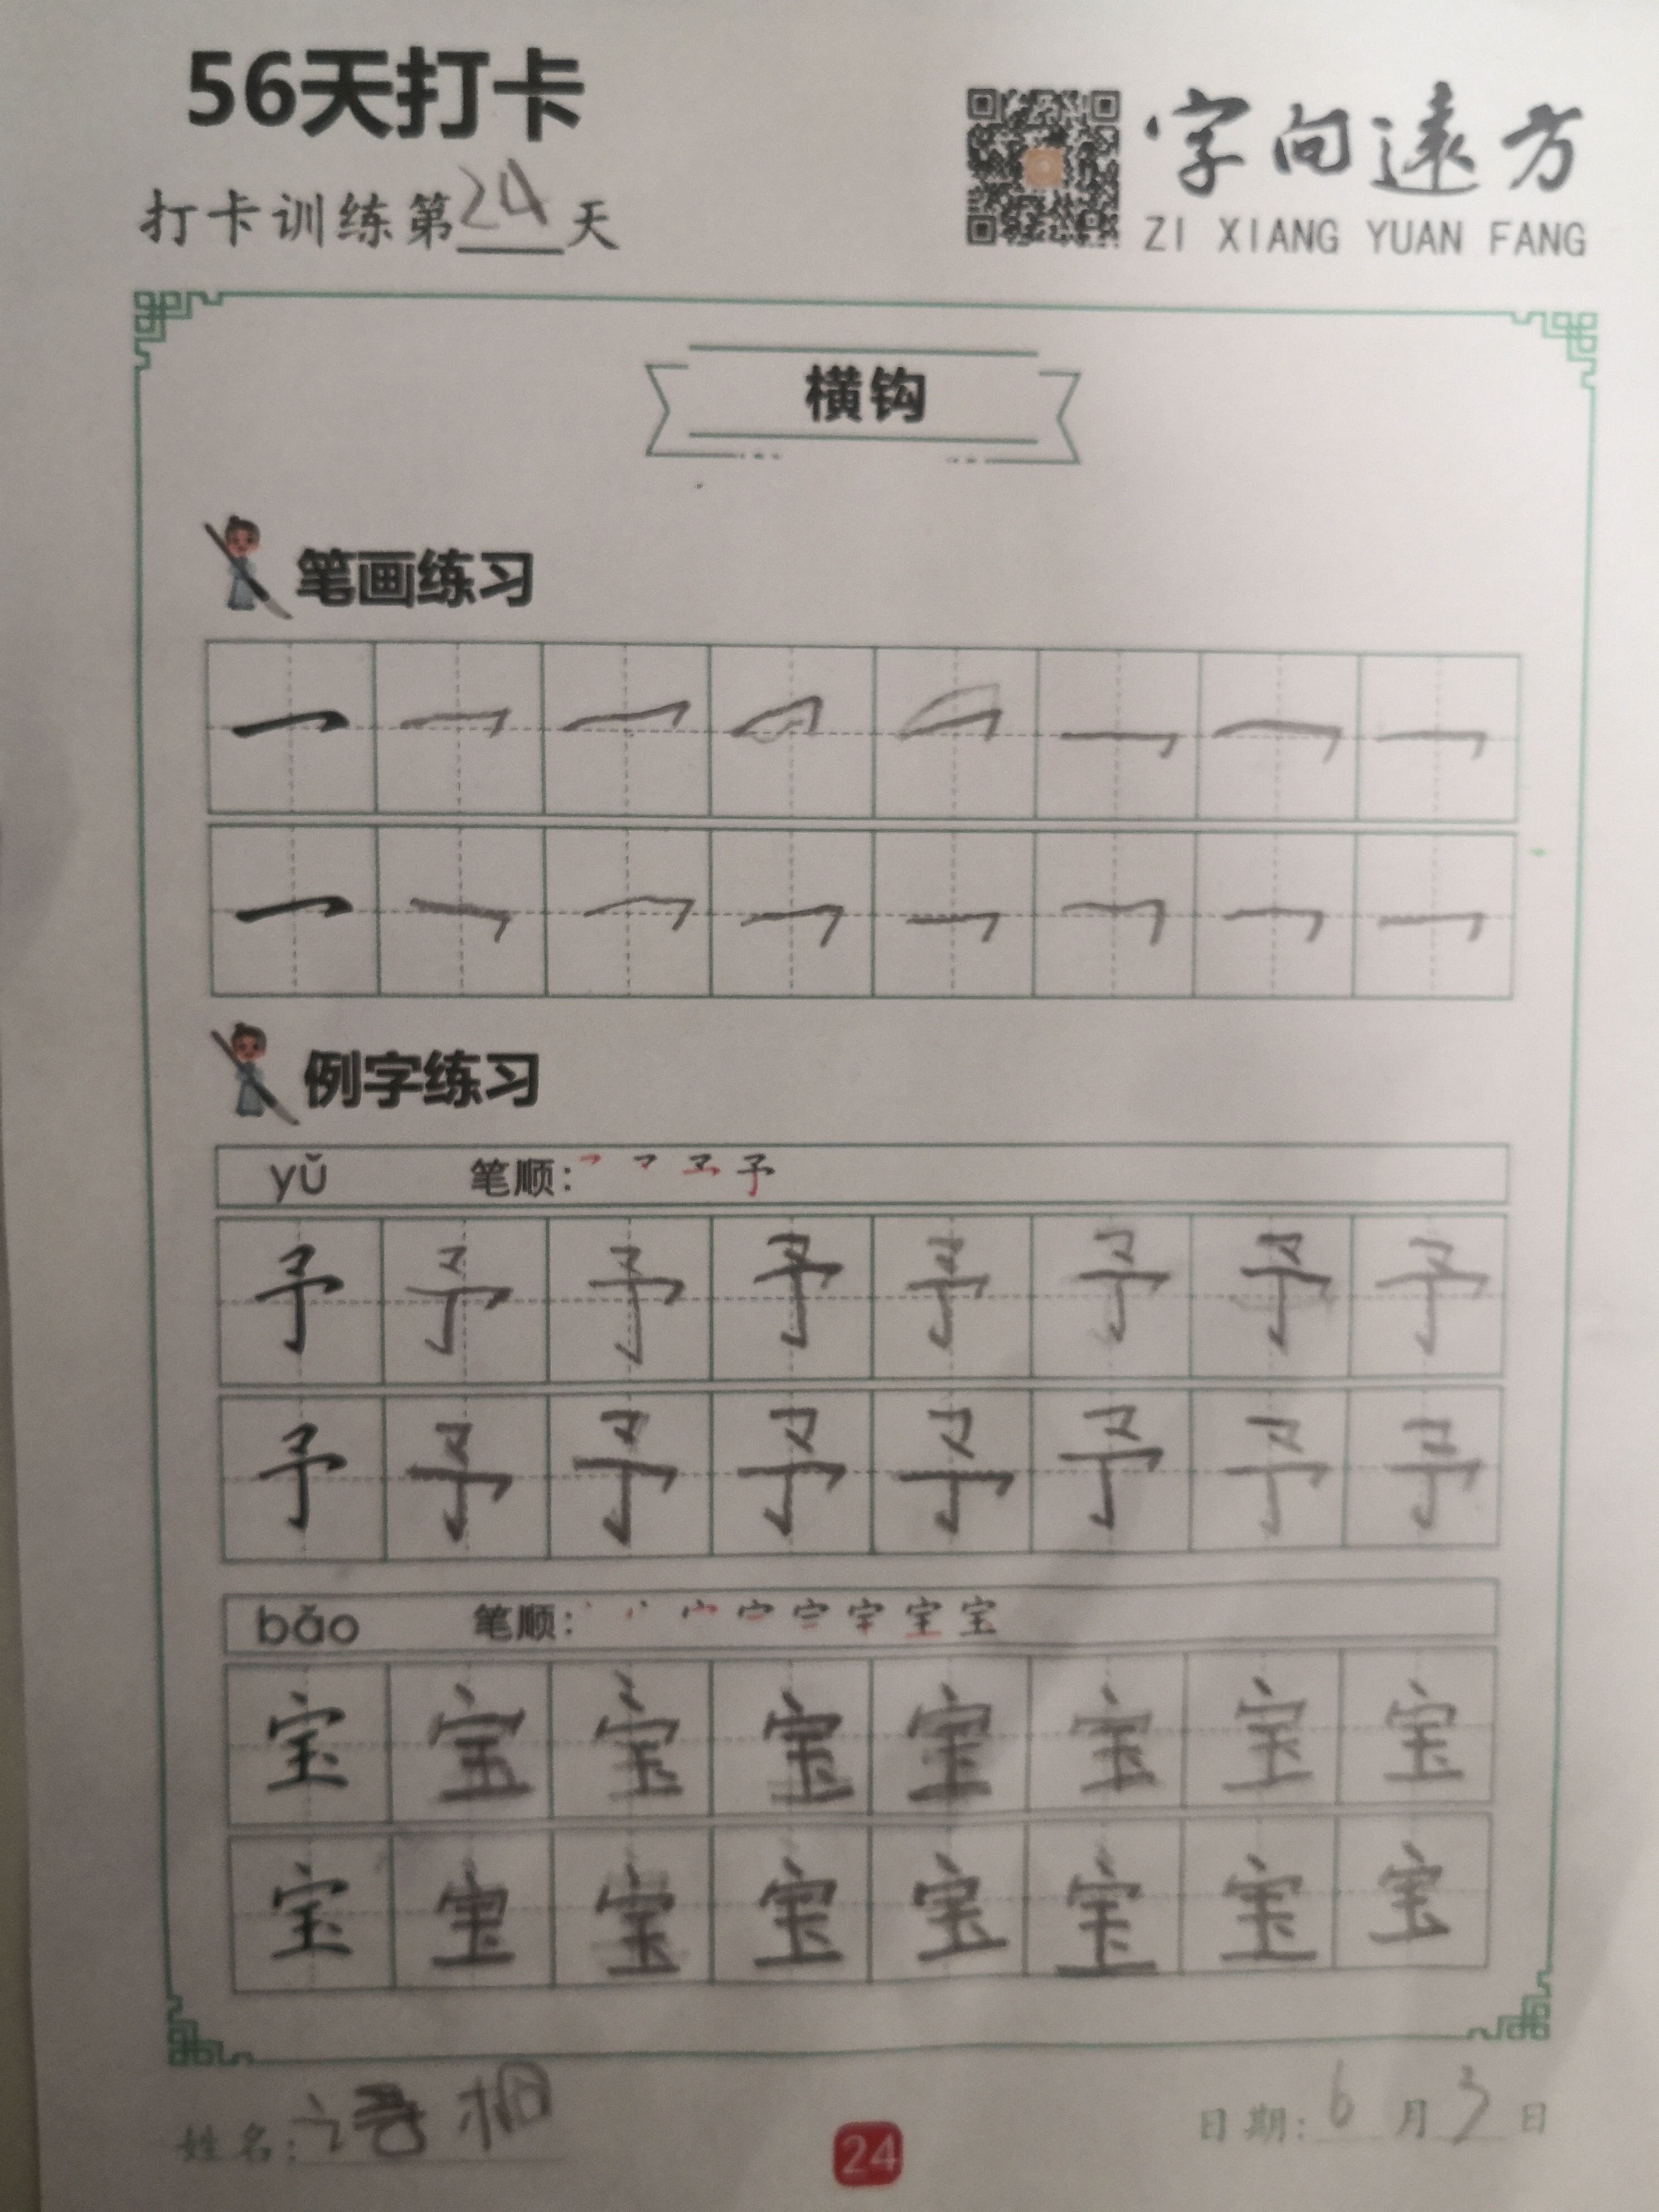 56天打卡
打卡训练第24天
字向遠方
ZI XIANG YUAN FANG
横钩
笔画练习
例字练习
yǔ 笔顺:
予 予 予 予 予 予 予 予
予 予 予 予 予 予 予 予
bǎo 笔顺:
宝 宝 宝 宝 宝 宝 宝 宝
宝 宝 宝 宝 宝 宝 宝 宝
姓名: 语桐
24
日期: 6月3日